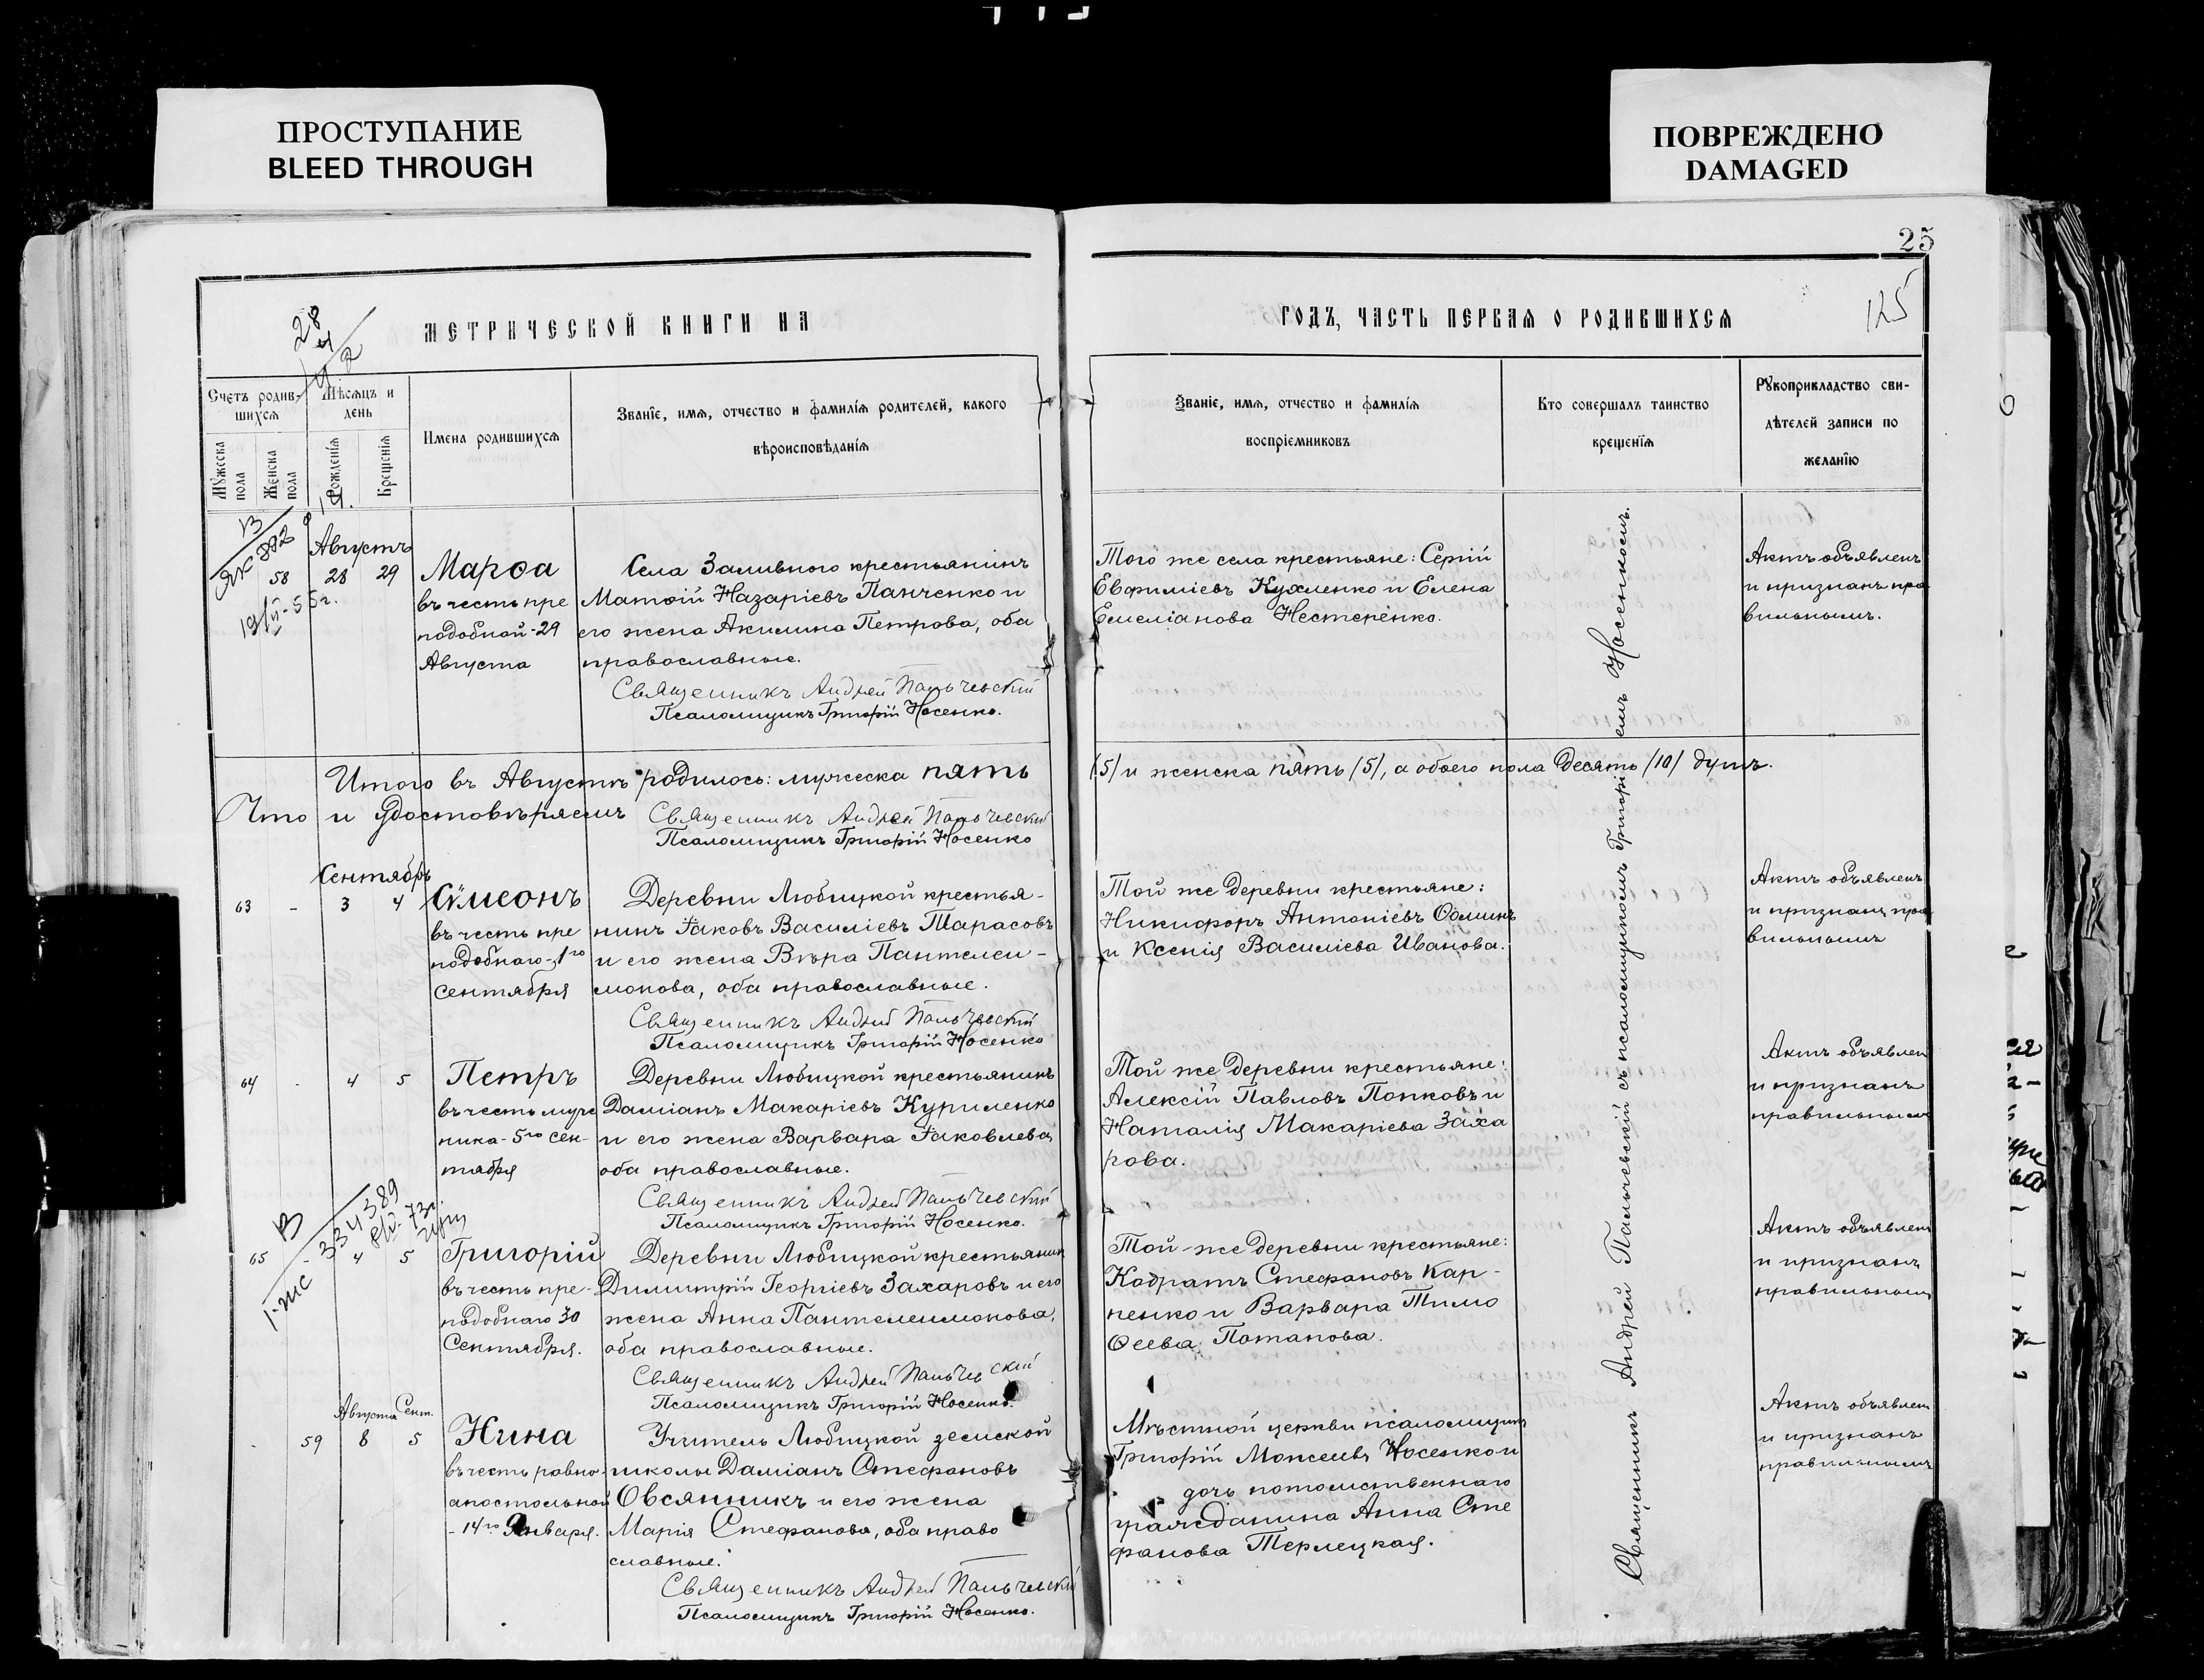 ПРОСТУПАНИЕ
BLEED THROUGH
ПОВРЕЖДЕНО
DAMAGED
25
125
МЕТРИЧЕСКОЙ КНИГИ НА
ГОДЪ, ЧАСТЬ ПЕРВАЯ О РОДИВШИХСЯ
28
Счетъ родив-
шихся
Мужеска
пола
Женска
пола
Мѣсяцъ и
день
Рожденія
Крещенія
Имена родившихся
Званіе, имя, отчество и фамилія родителей, какого
вѣроисповѣданія
Званіе, имя, отчество и фамилія
воспріемниковъ
Кто совершалъ таинство
крещенія
Рукоприкладство сви-
дѣтелей записи по
желанію
Августъ
58 28 29
Марѳа
въ честь пре
подобной - 29
Августа
Села Заливного крестьянинъ
Матѳій Назаріевъ Панченко и
его жена Акилина Петрова, оба
православные.
Священникъ Андрей Пальчевскій
Псаломщикъ Григорій Носенко.
Того же села крестьяне: Сергій
Евфиміевъ Кухленко и Елена
Емеліанова Нестеренко.
Актъ объявленъ
и признанъ пра
вильнымъ.
Итого въ Августѣ родилось: мужеска пять
/5/ и женска пять /5/, а обоего пола десять /10/ душъ.
Что и удостовѣряемъ
Священникъ Андрей Пальчевскій
Псаломщикъ Григорій Носенко
Сентябрь
63 - 3 4
Сѵмеонъ
въ честь пре
подобнаго - 1го
Сентября
Деревни Любицкой крестья-
нинъ Іаковъ Василіевъ Тарасовъ
и его жена Вѣра Пантелеи-
монова, оба православные.
Священникъ Андрей Пальчевскій
Псаломщикъ Григорій Носенко
Той же деревни крестьяне:
Никифоръ Антоніевъ Ѳоминъ
и Ксенія Василіева Иванова.
Актъ объявленъ
и признанъ пра
вильнымъ
64 - 4 5
Петръ
въ честь муче
ника - 5го Сен-
тября
Деревни Любицкой крестьянинъ
Даміанъ Макаріевъ Куриленко
и его жена Варвара Іаковлева,
оба православные.
Священникъ Андрей Пальчевскій
Псаломщикъ Григорій Носенко.
Той же деревни крестьяне:
Алексій Павловъ Попковъ и
Наталія Макаріева Заха
рова.
Актъ объявлен
и признанъ
правильнымъ
334389
65 - 4 5
Григорій
въ честь пре-
подобнаго 30
Сентября.
Деревни Любицкой крестьянин
Димитрій Георгіевъ Захаровъ и его
жена Анна Пантелеимонова,
оба православные.
Священникъ Андрей Пальчевскій
Псаломщикъ Григорій Носенко.
Той-же деревни крестьяне:
Кодратъ Стефановъ Кар-
пенко и Варвара Тимо
ѳеева Потапова.
Актъ объявлен
и признанъ
правильным
Августа Сент.
- 59 8 5
Нина
въ честь равно-
апостольной
- 14го Января.
Учитель Любицкой земской
школы Даміанъ Стефановъ
Овсянникъ и его жена
Марія Стефанова, оба право
славные.
Священникъ Андрей Пальчевскій
Псаломщикъ Григорій Носенко.
Мѣстной церкви псаломщикъ
Григорій Моисеевъ Носенко и
дочь потомственнаго
гражданина Анна Сте
фанова Терлецкая.
Актъ объявлен
и признанъ
правильнымъ
Священникъ Андрей Пальчевскій съ псаломщикомъ Григоріемъ Носенкомъ.